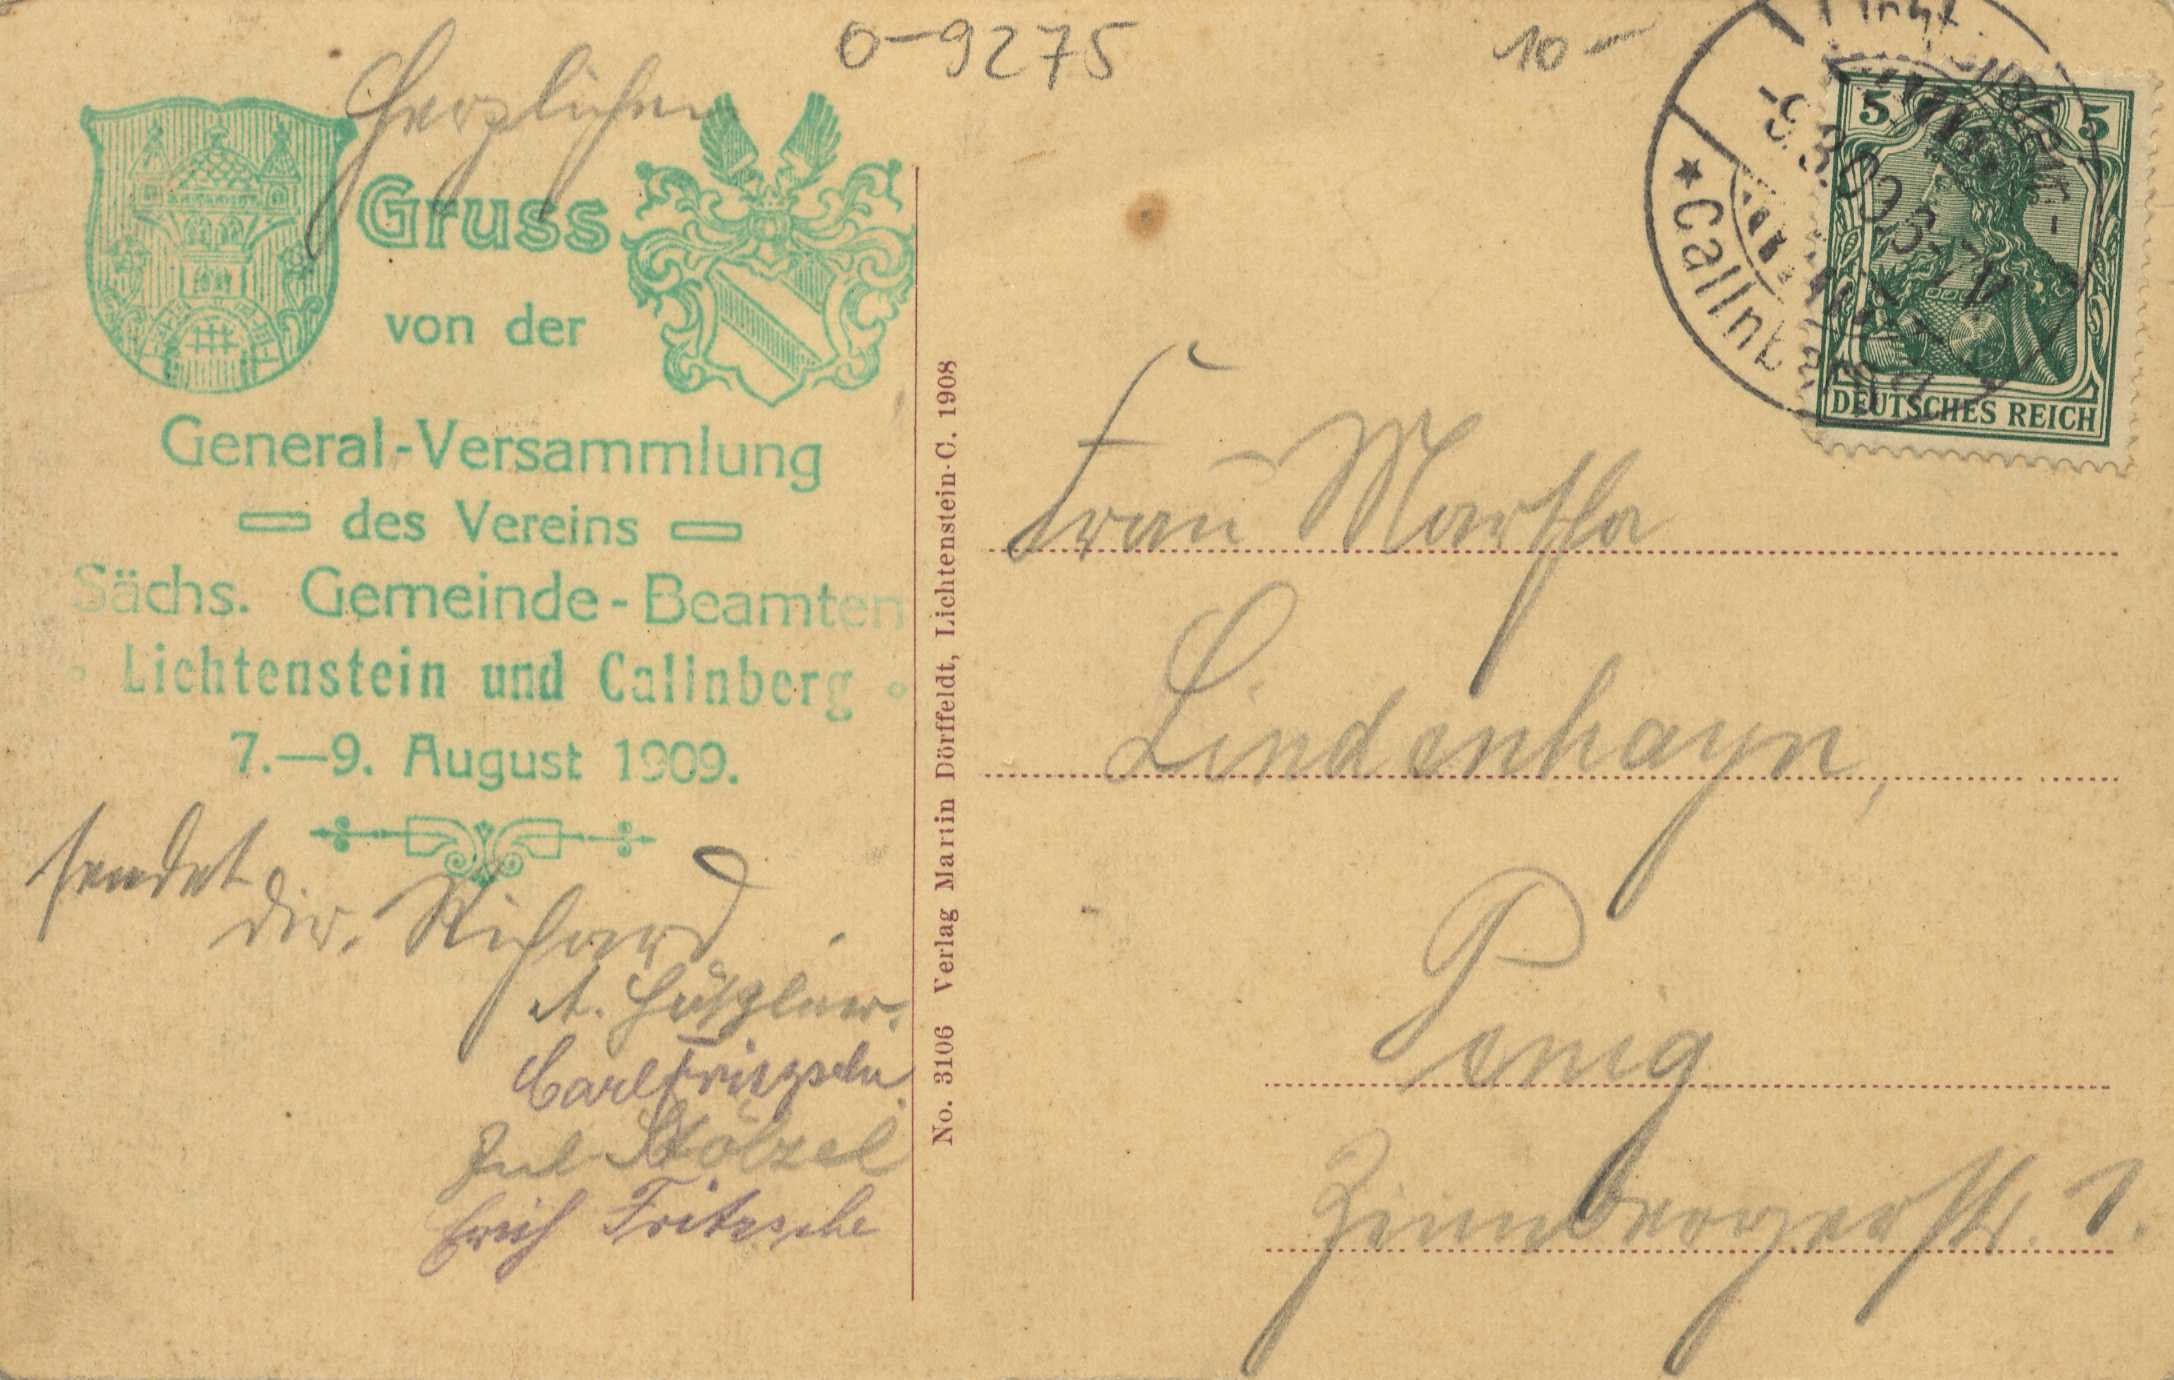 0-9275
10-
Herzlichen
Gruss
von der
General-Versammlung
des Vereins
Sächs. Gemeinde-Beamten
Lichtenstein und Callnberg
7.—9. August 1909.
sendet
dir. Richard
A.
Carl Fritzsche
Jul. Stölzel
Erich Fritzsche
No. 3106 Verlag Martin Dörffeldt, Lichtenstein-C. 1908
Callnberg
5 5
DEUTSCHES REICH
Frau Martha
Lindenhayn,
Penig
Zinnbergerstr. 1.